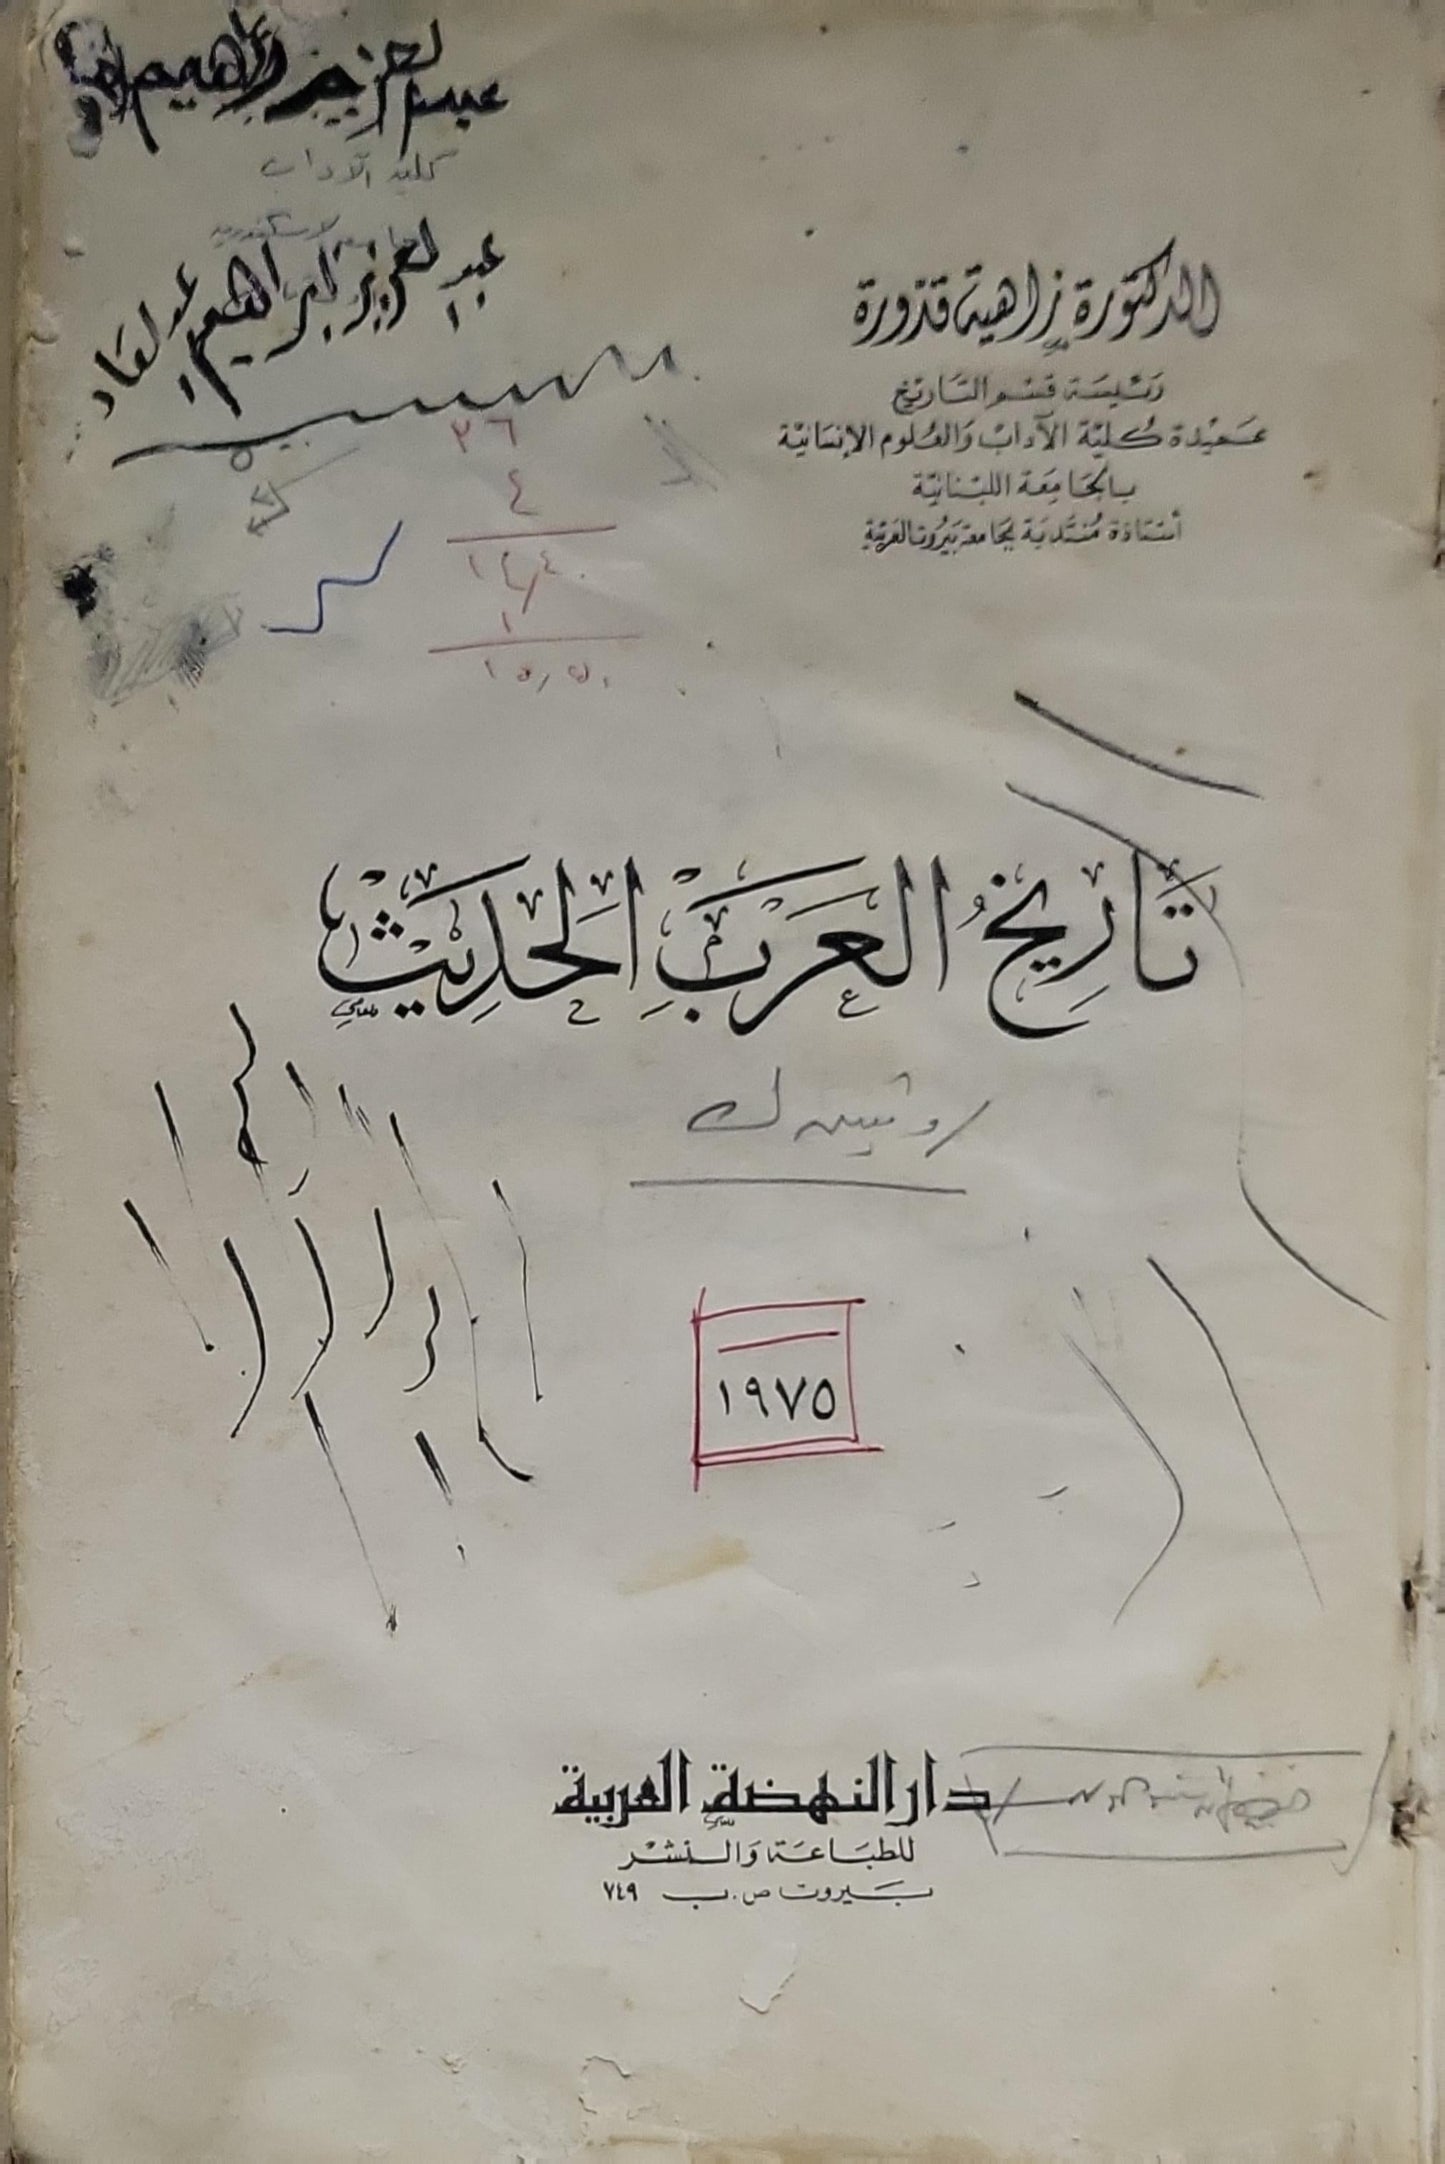 عبد العزيز إبراهيم
كلية الآداب
عبد العزيز ابراهيم
الدكتورة زاهية قدورة
رئيسة قسم التاريخ
عميدة كلية الآداب والعلوم الإنسانية
بالجامعة اللبنانية
أستاذة منتدبة بجامعة بيروت العربية
٣٦
٤
١٤٫٤٠
١
١٥٫٥٠
تَاريخُ العَرَبِ الحَديث
١٩٧٥
دار النهضة العربية
للطبَاعَة وَالنشر
بَيروت ص.ب ٧٤٩